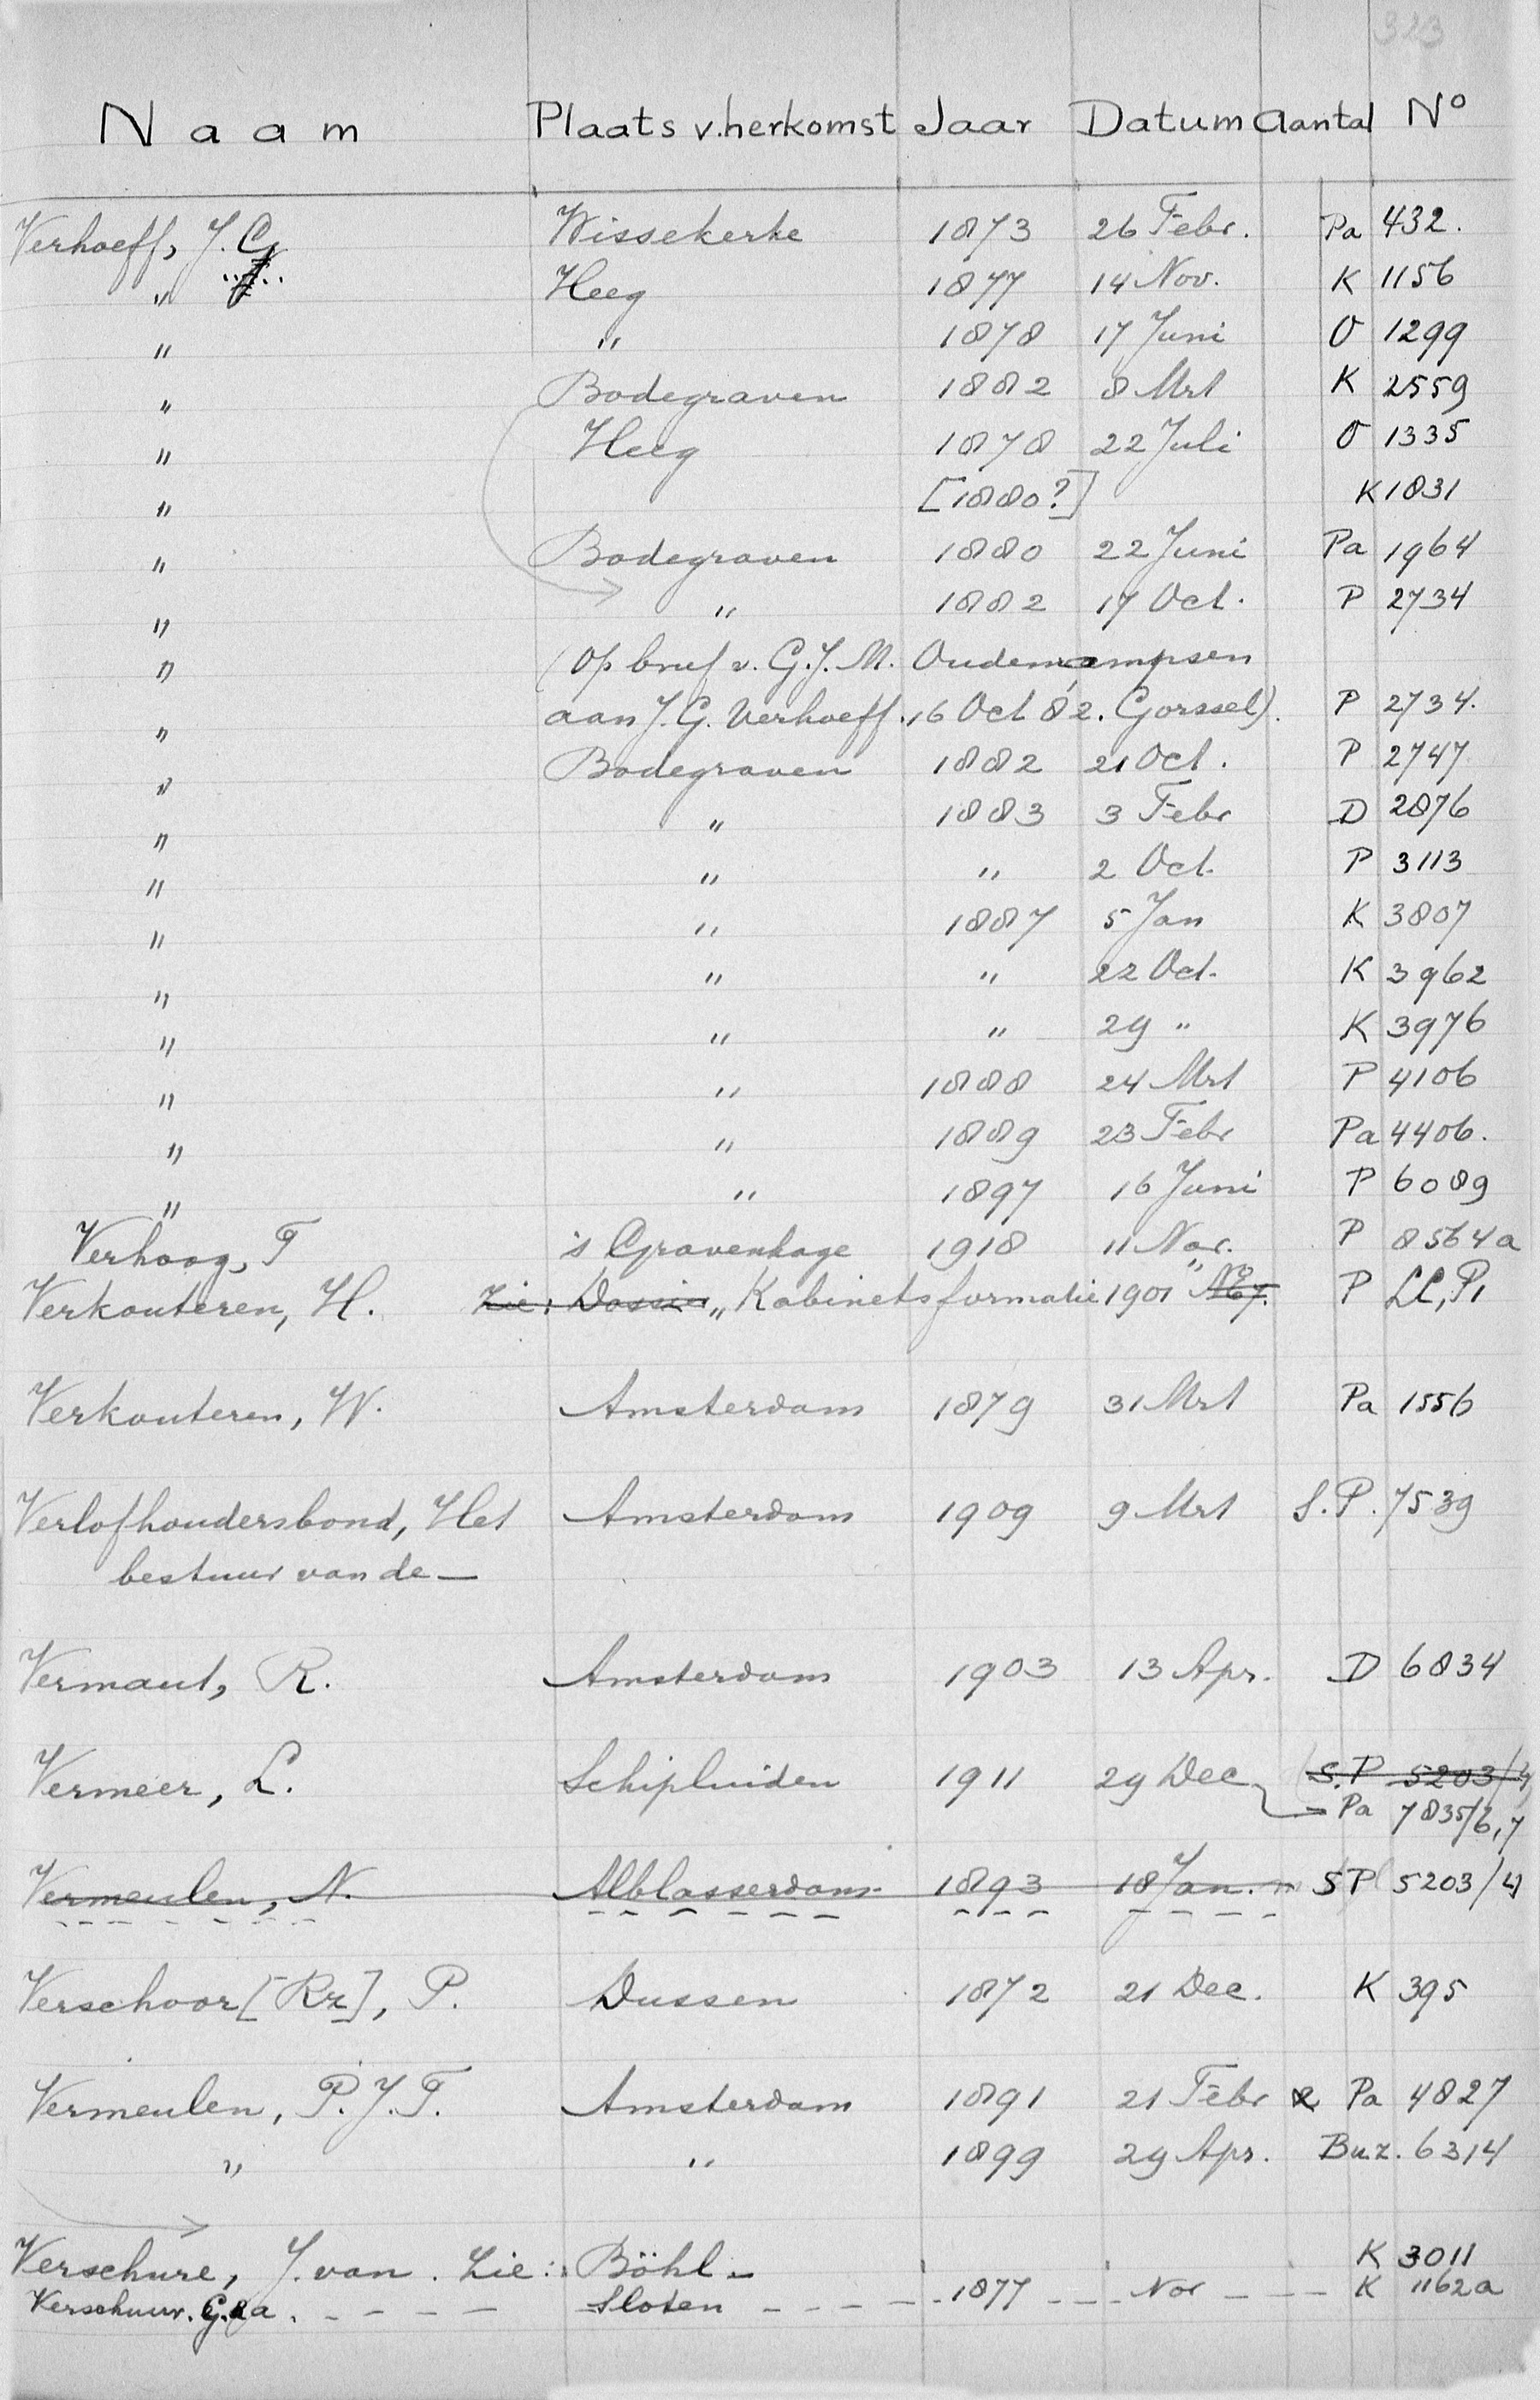 323
Naam Plaats v. herkomst Jaar Datum Aantal No
Verhoeff, J. G. Wissekerke 1873 26 Febr. Pa 432.
" Heeg 1877 14 Nov. K 1156
" " 1878 17 Juni O 1299
" Bodegraven 1882 8 Mrt K 2559
" Heeg 1878 22 Juli O 1335
" [1880?] K 1831
" Bodegraven 1880 22 Juni Pa 1964
" " 1882 17 Oct. P 2734
" (Op brief v. G. J. M. Oudemampsen
" aan J. G. Verhoeff. 16 Oct '82. Gorssel). P 2734.
" Bodegraven 1882 21 Oct. P 2747
" " 1883 3 Febr D 2876
" " " 2 Oct. P 3113
" " 1887 5 Jan K 3807
" " " 22 Oct. K 3962
" " " 29 " K 3976
" " 1888 24 Mrt P 4106
" " 1889 23 Febr Pa 4406.
" " 1897 16 Juni P 6089
Verhoog, T 's Gravenhage 1918 11 Nov. P 8564a
Verkouteren, H. Zie: Dossier „Kabinetsformatie 1901" No 7. P LL, P1
Verkouteren, W. Amsterdam 1879 31 Mrt Pa 1556
Verlofhoudersbond, Het Amsterdam 1909 9 Mrt S.P. 7539
bestuur van de —
Vermaut, R. Amsterdam 1903 13 Apr. D 6834
Vermeer, L. Schipluiden 1911 29 Dec S.P 5203/4
Pa 7835/6,7
Vermeulen, N. Alblasserdam 1893 18 Jan. SP 5203/4
Verschoor [Rz], P. Dussen 1872 21 Dec. K 395
Vermeulen, P. J. F. Amsterdam 1891 21 Febr Pa 4827
" " 1899 29 Apr. Buz. 6314
Verschure, J. van. Zie: Böhl — K 3011
Verschuur. Sloten 1877 Nov K 1162a